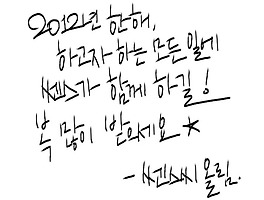 2012년 한해,
하고자 하는 모든 일에
쎈스가 함께 하길!
복 많이 받으세요 ★
- 쎈스씨 올림.